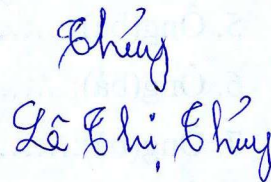 Thúy
Lê Thị Thúy